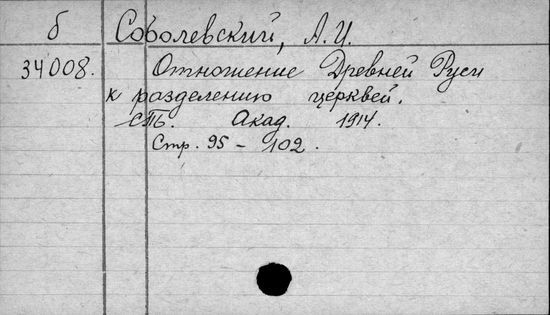 б Соболевский, А.И.
34008. Отношение Древней Руси
к разделению церквей.
СПБ. Акад. 1914.
Стр. 95 - 102.